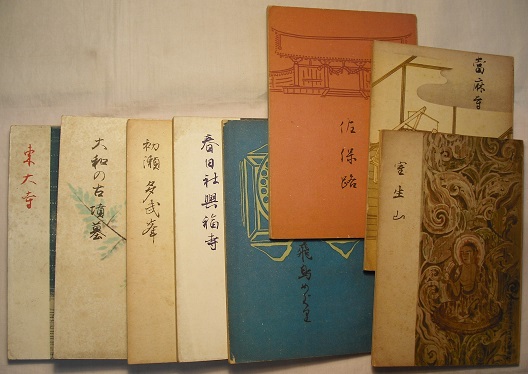 東大寺
大和の古墳墓
初瀬 多武峯
春日社興福寺
飛鳥めぐり
佐保路
當麻寺
室生山